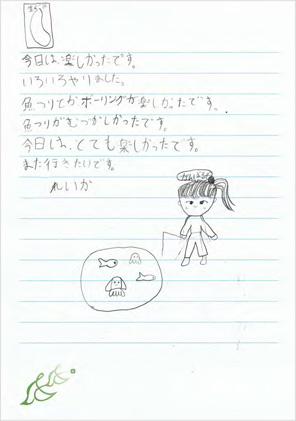 まろぅ
今日は、楽しかったです。
いろいろやりました。
魚つりとかボーリングが楽しかったです。
魚つりがむづかしかったです。
今日は、とても楽しかったです。
また行きたいです。
れいか
がんばるぞ